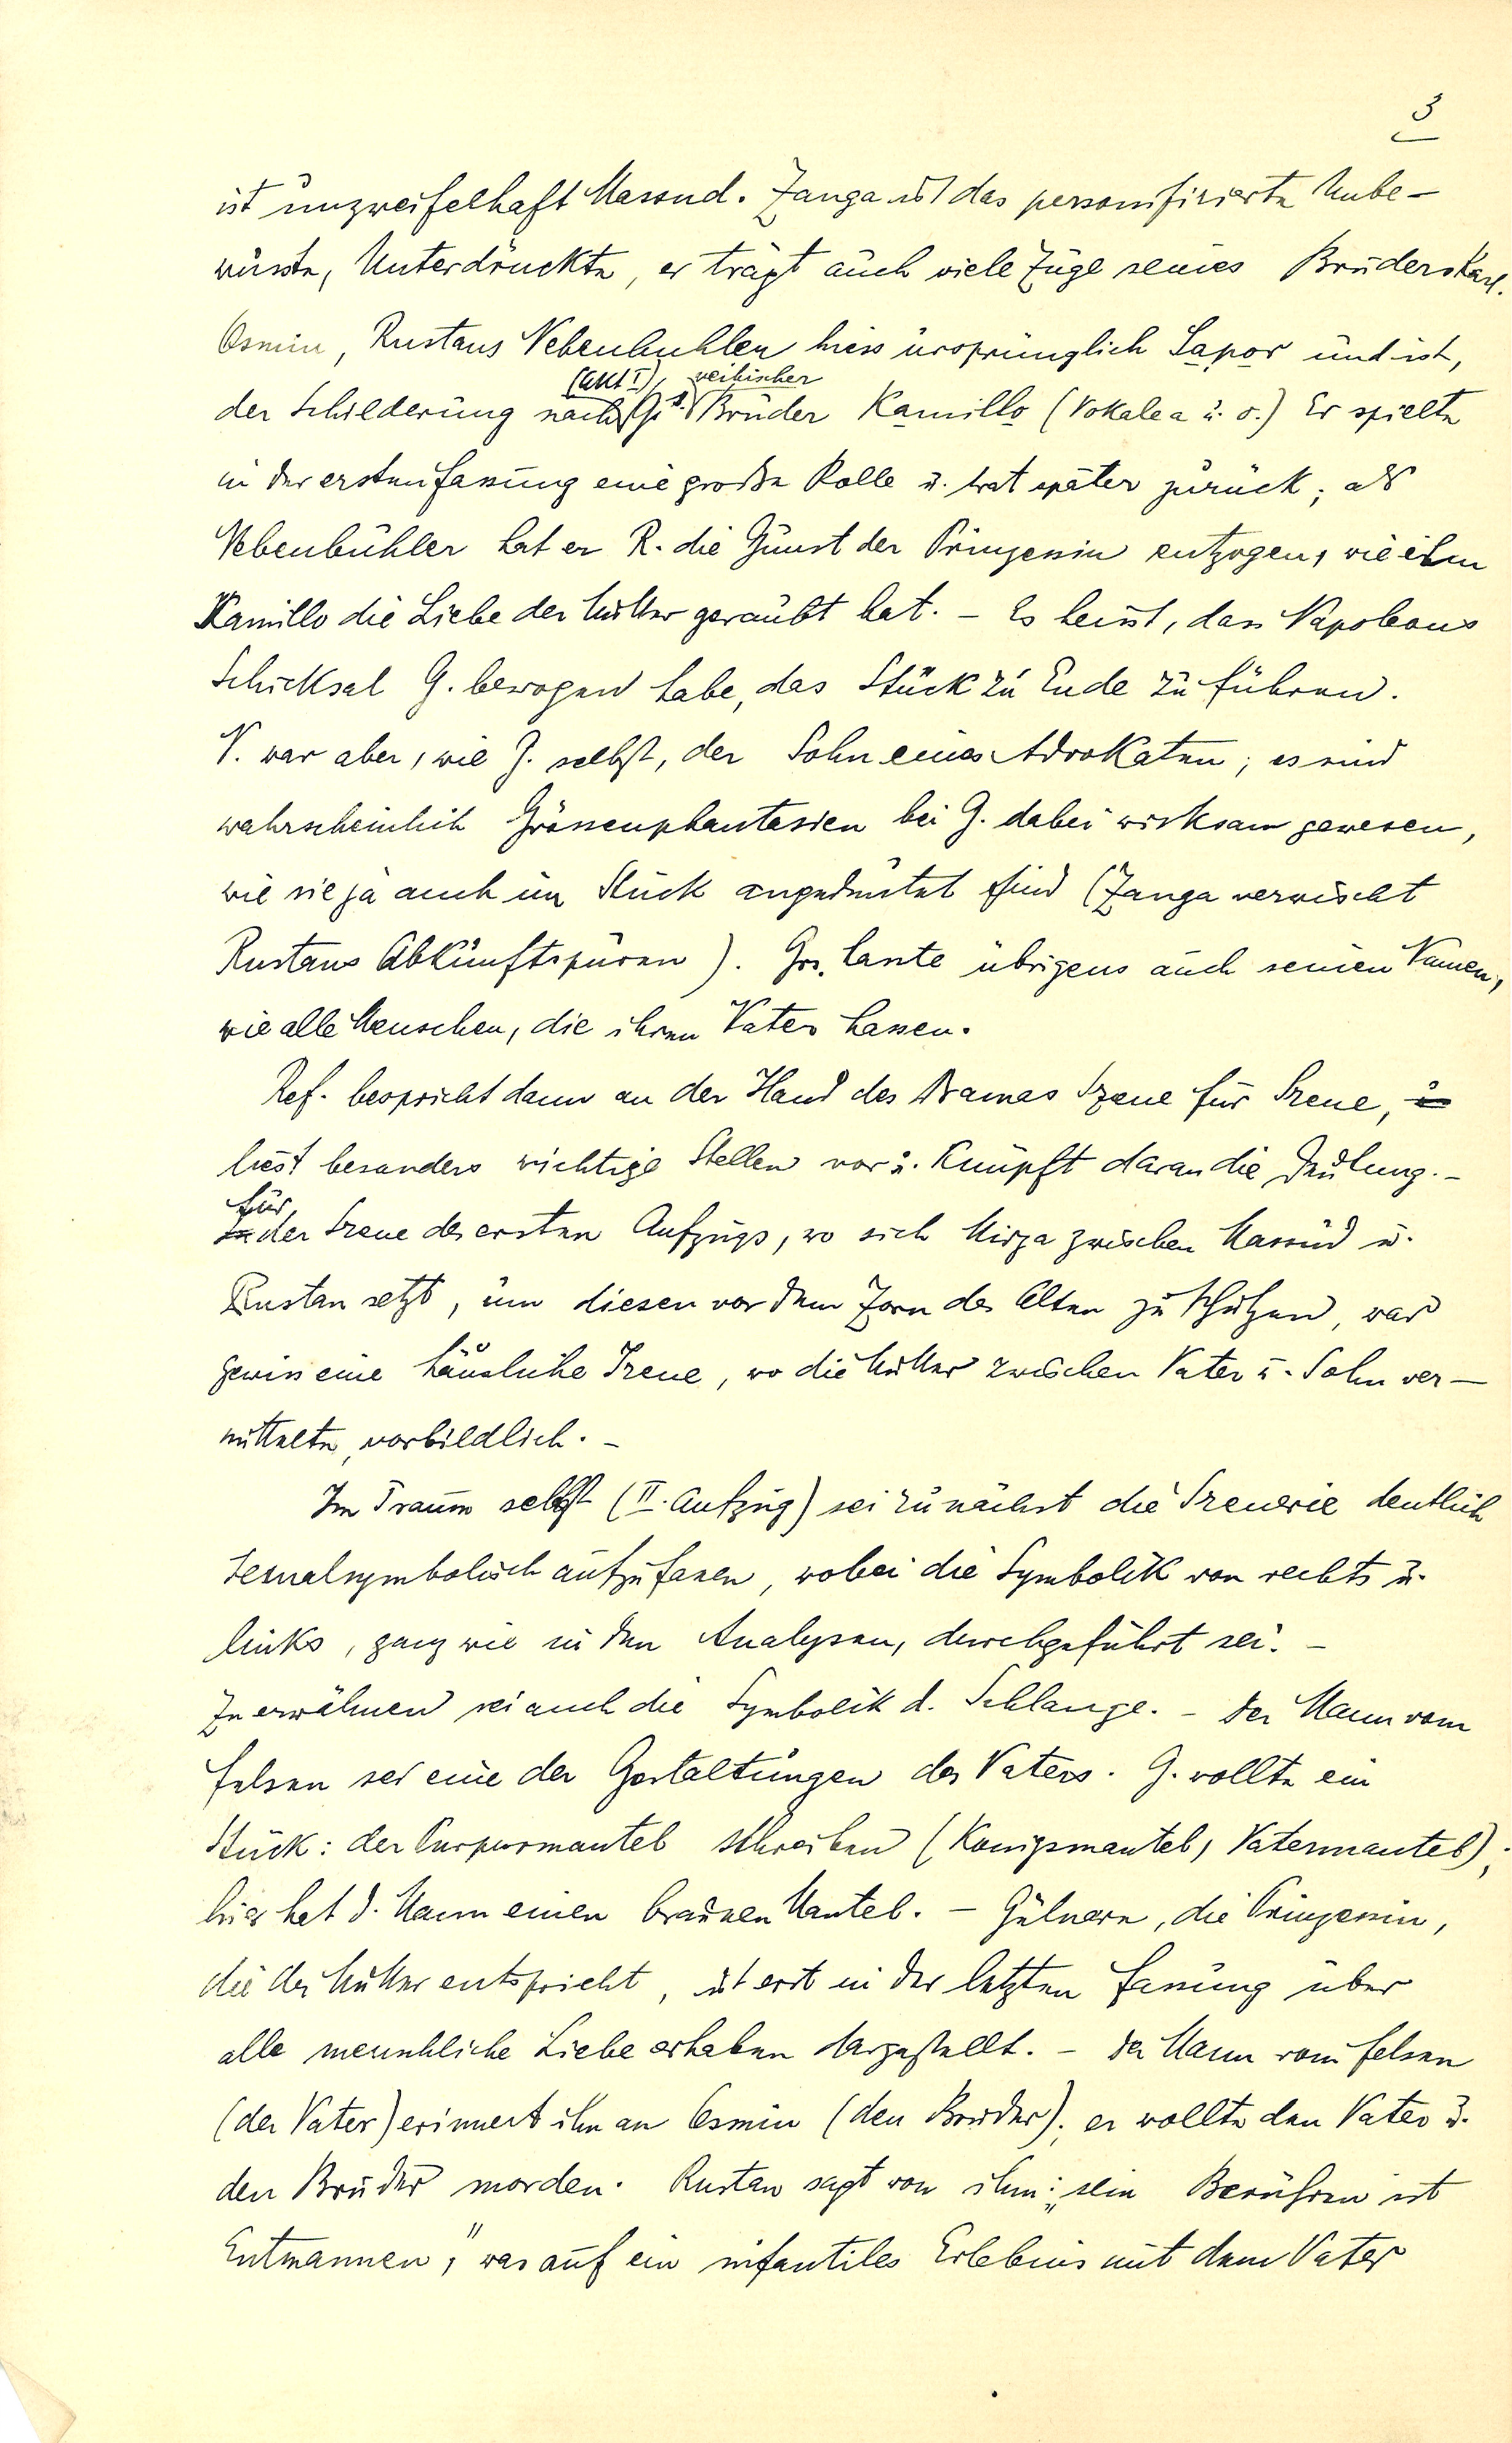 3
ist unzweifelhaft Massud. Zanga ist das personifizierte Unbe-
wusste, Unterdrückte, er trägt auch viele Züge seines Bruders Karl.
Osmin, Rustans Nebenbuhler hiess ursprünglich Sapor und ist,
(Akt I), weibischer
der Schilderung nach G's. Bruder Kamillo (Vokale a u. o.) Er spielte
in der ersten Fassung eine große Rolle u. trat später zurück; als
Nebenbuhler hat er R. die Gunst der Prinzessin entzogen, wie ihm
Kamillo die Liebe der Mutter geraubt hat. - Es heisst, dass Napoleons
Schicksal G. bewogen habe, das Stück zu Ende zu führen.
N. war aber, wie G. selbst, der Sohn eines Advokaten; es sind
wahrscheinlich Grössenphantasien bei G. dabei wirksam gewesen,
wie sie ja auch im Stück angedeutet sind (Zanga verwischt
Rustans Abkunftspuren). Gr. hasste übrigens auch seinen Namen,
wie alle Menschen, die ihren Vater hassen.
Ref. bespricht dann an der Hand des Dramas Szene für Szene,
liest besonders wichtige Stellen vor u. knüpft daran die Deutung. -
Für
der Szene des ersten Aufzugs, wo sich Mirza zwischen Massud u.
Rustan setzt, um diesen vor dem Zorn des Alten zu schützen, war
gewiss eine häusliche Szene, wo die Mutter zwischen Vater u. Sohn ver-
mittelte, vorbildlich. -
Im Traum selbst (II. Aufzug) sei zunächst die Szenerie deutlich
sexualsymbolisch aufzufassen, wobei die Symbolik von rechts u.
links, ganz wie in den Analysen, durchgeführt sei. -
Zu erwähnen sei auch die Symbolik d. Schlange. - Der Mann vom
Felsen sei eine der Gestaltungen des Vaters. G. wollte ein
Stück: der Purpurmantel schreiben (Königsmantel, Vatermantel);
hier hat d. Mann einen braunen Mantel. - Gülnare, die Prinzessin,
die der Mutter entspricht, ist erst in der letzten Fassung über
alle menschliche Liebe erhaben dargestellt. - Der Mann vom Felsen
(der Vater) erinnert ihn an Osmin (den Bruder); er wollte den Vater u.
den Bruder morden. Rustan sagt von ihm: „sein Berühren ist
Entmannen", was auf ein infantiles Erlebnis mit dem Vater